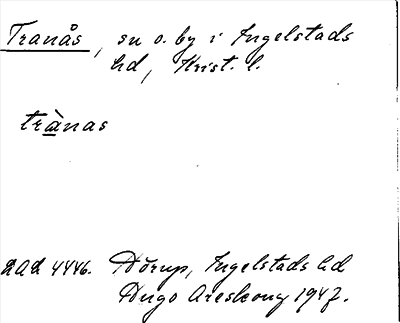 Tranås, sn o. by i Ingelstads
hd, Krist. l.
trànas
LAL 4446. Hörup, Ingelstads hd
Hugo Areskoug 1947.